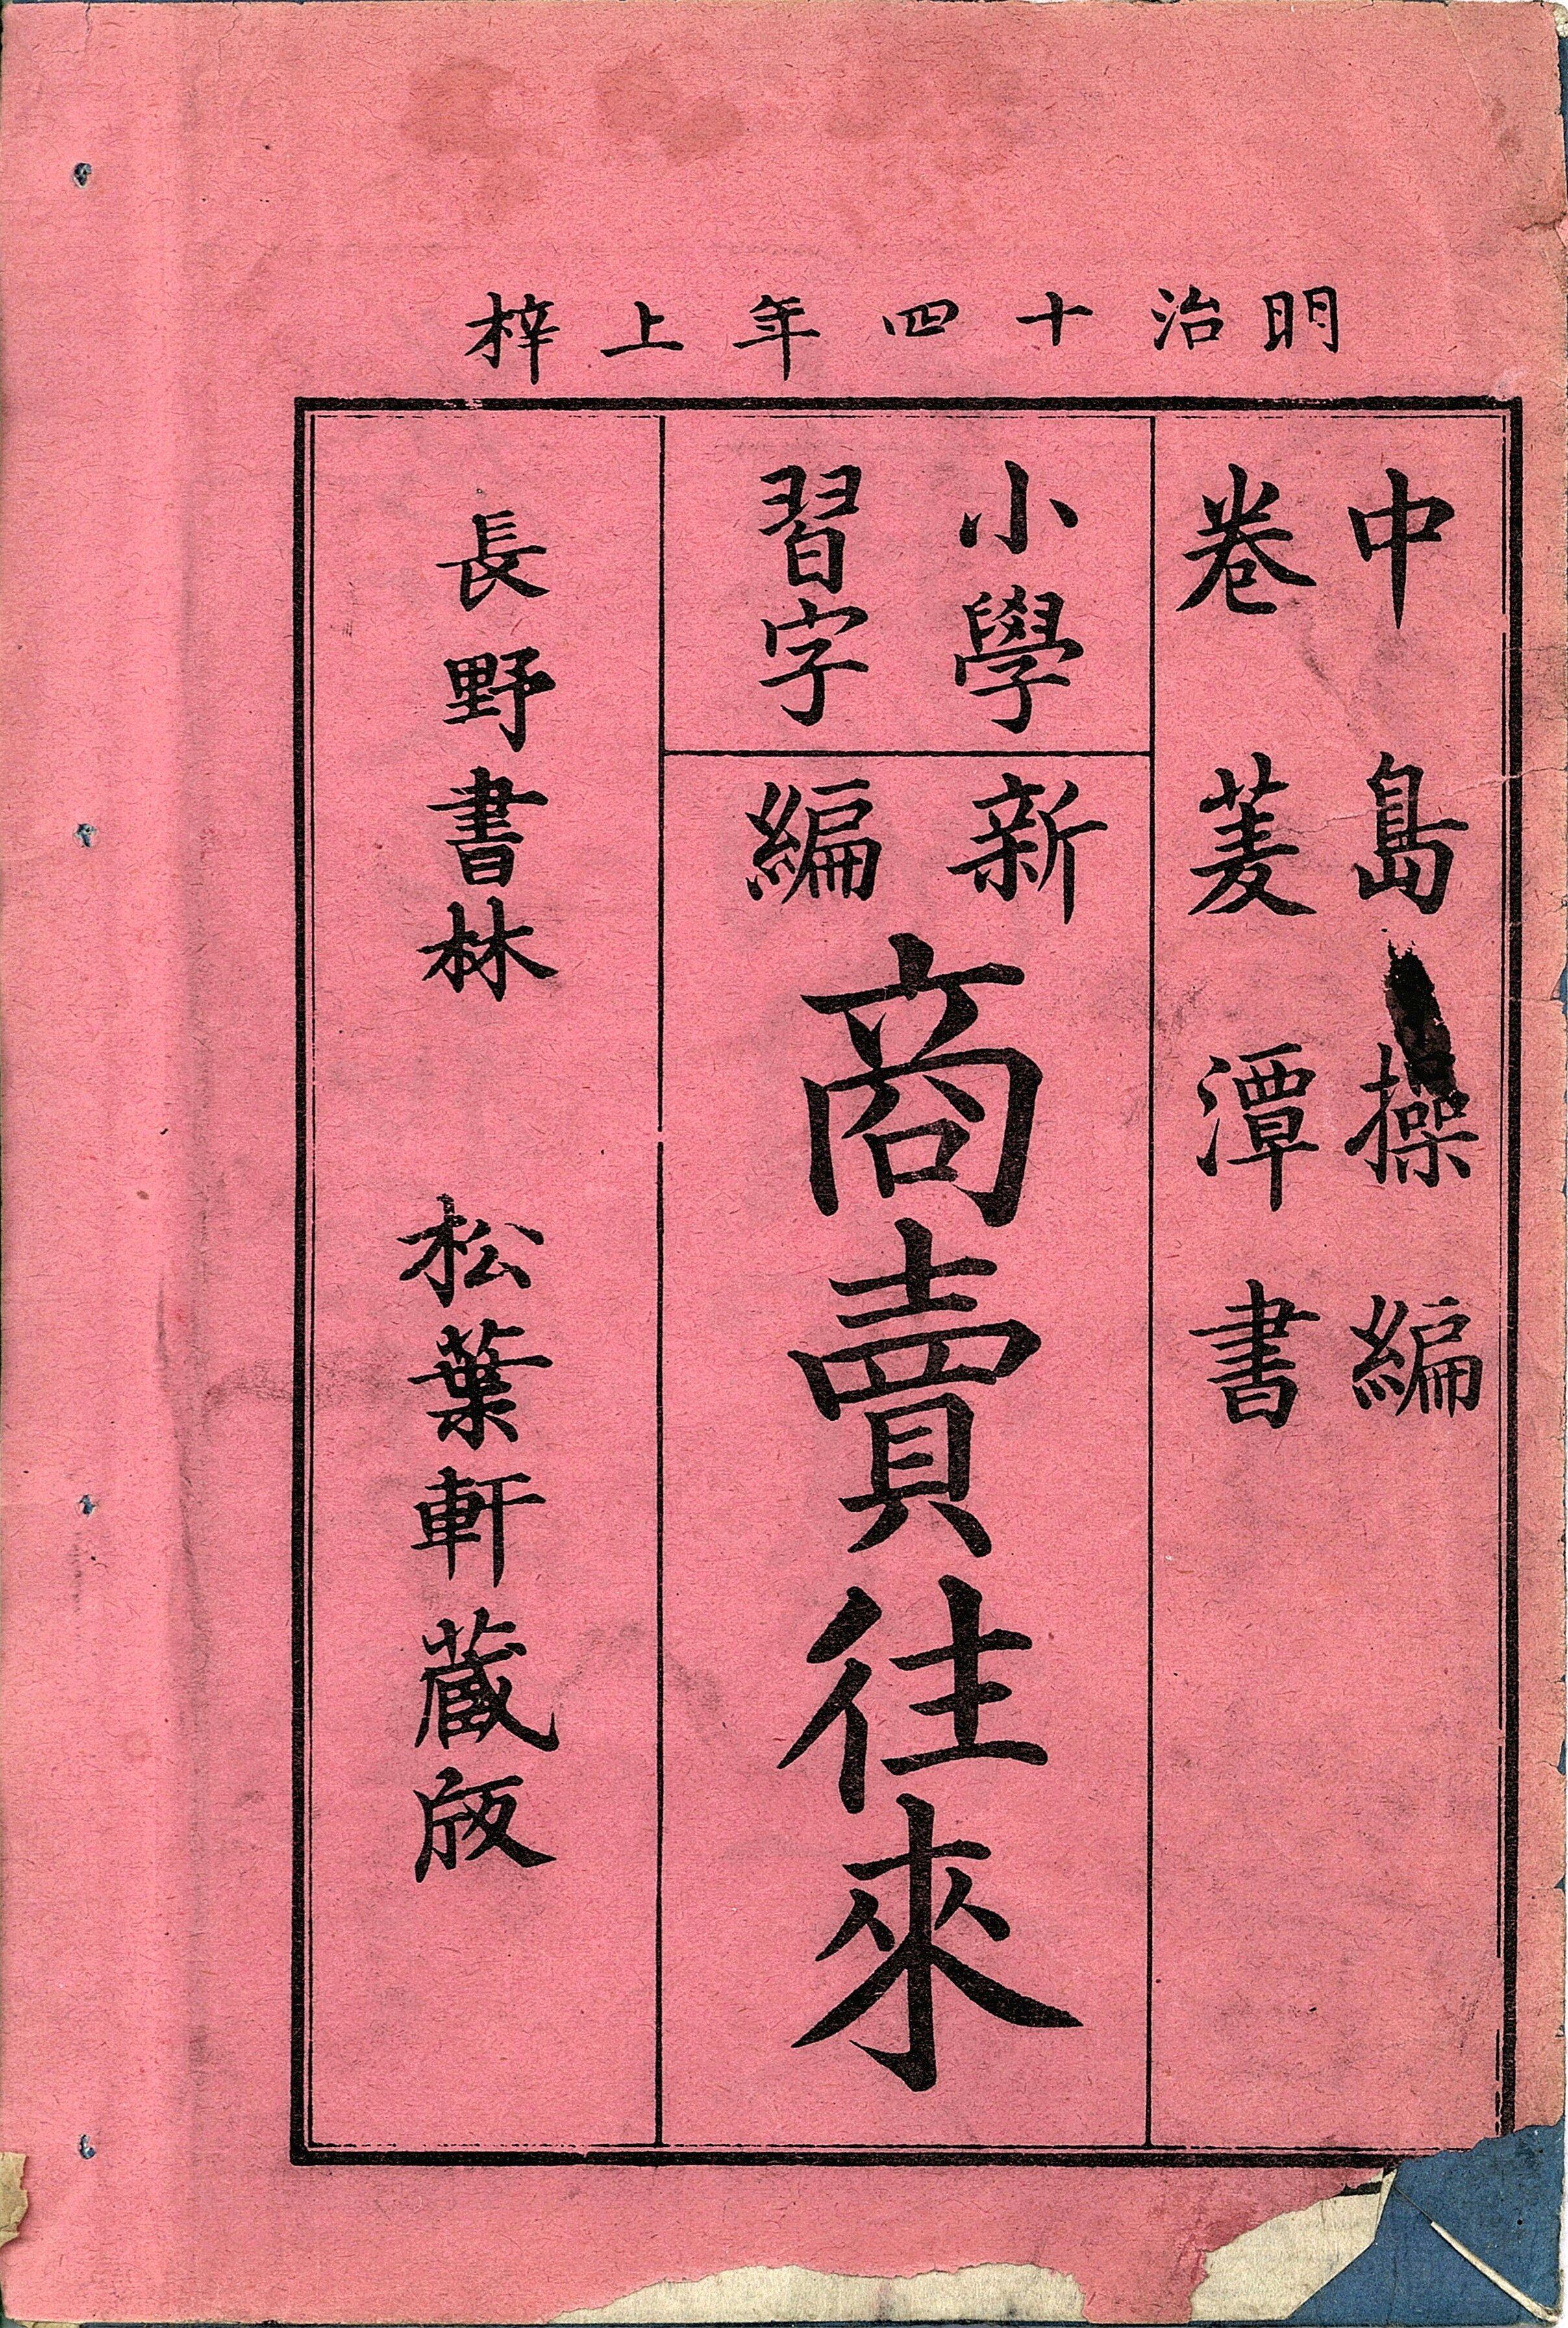 明治十四年上梓
中島操編
卷菱潭書
小學
習字
新
編
商賣往來
長野書林 松葉軒藏版